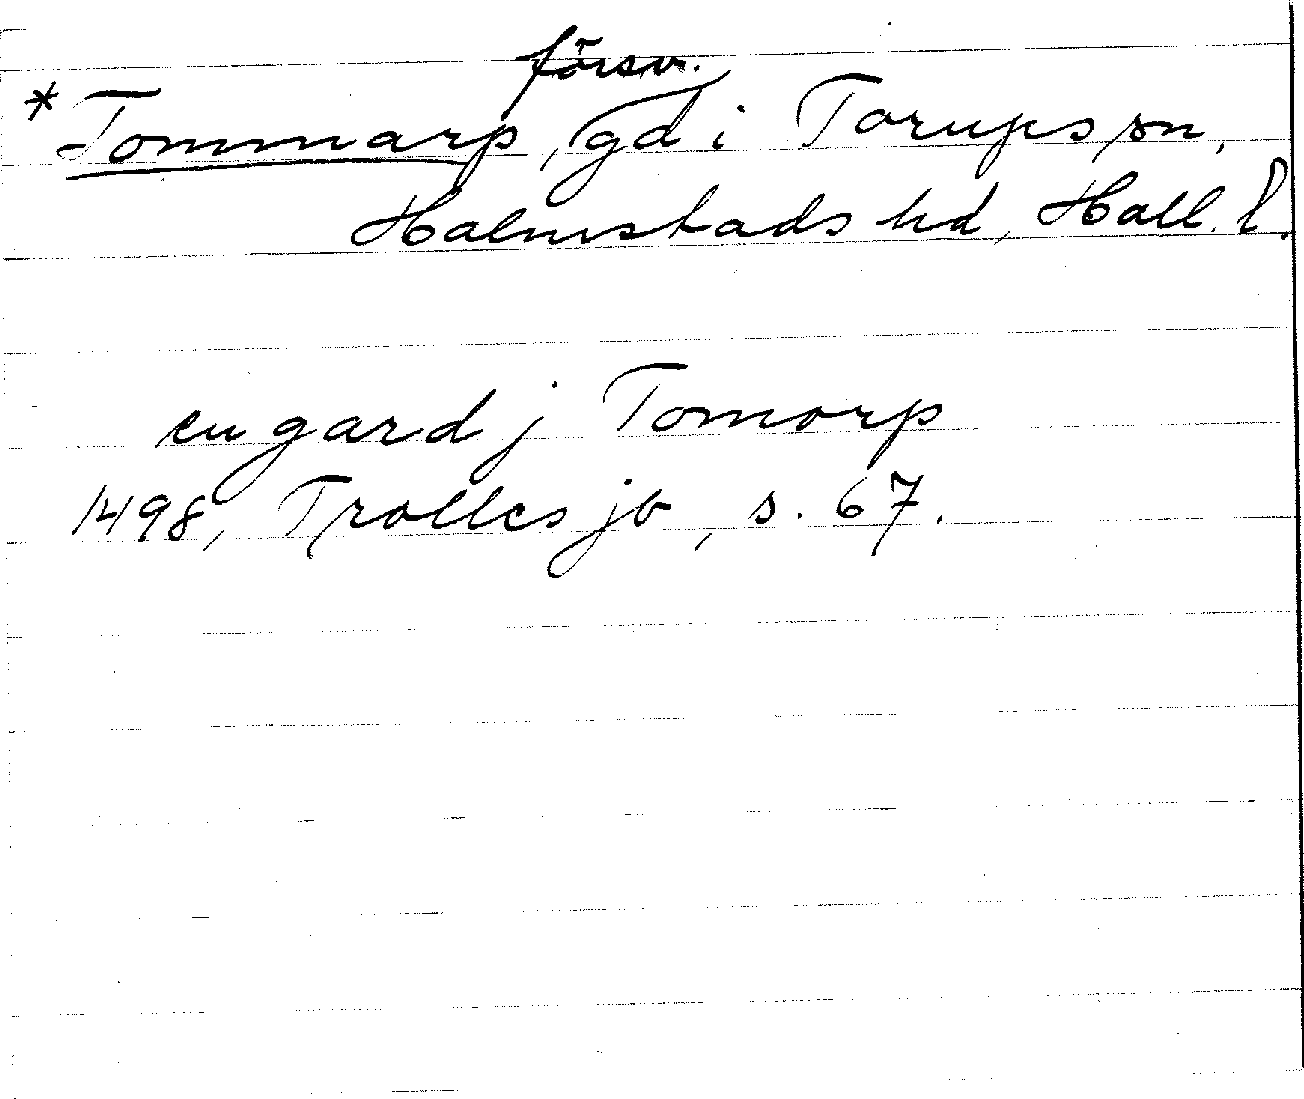 försv.
* Tommarp, gd i Torups sn,
Halmstads hd, Hall. l.
en gard j Tomorp
1498, Trolles jb, s. 67.